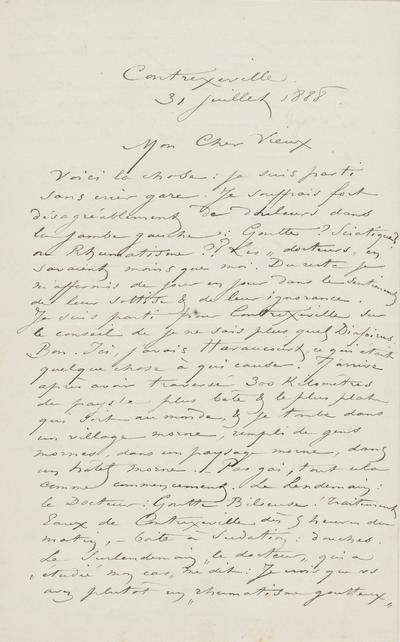 Contrexeville
31 juillet 1888.
Mon Cher Vieux
Voici la chose : je suis parti
sans crier gare. Je souffrais fort
désagréablement de douleurs dans
la jambe gauche : Goutte ? Sciatique ?
ou Rhumatisme ?? Les "docteurs" en
savaient moins que moi. Du reste je
m'affermis de jour en jour dans le sentiment
de leur sottise & de leur ignorance.
Je suis parti pour Contrexeville sur
le conseil de je ne sais plus quel Diafoirus.
Bon. Ici, j'avais Haraucourt, ce qui était
quelque chose à qui causer. J'arrive
après avoir traversé 300 Kilometres
du pays le plus bête & le plus plat
qui soit au monde, & je tombe dans
un village morne, rempli de gens
mornes, dans un paysage morne, dans
un hôtel morne. Pas gai, tout cela
comme commencement. Le Lendemain :
le Docteur : Goutte Bilieuse ! traitement
Eaux de Contrexeville dès 5 heures du
matin, – boîte à Sudation : douches.
Le Surlendemain "le docteur", qui a
"étudié mon cas" me dit : Je crois que vs
avez plutôt un "rhumatisme goutteux"